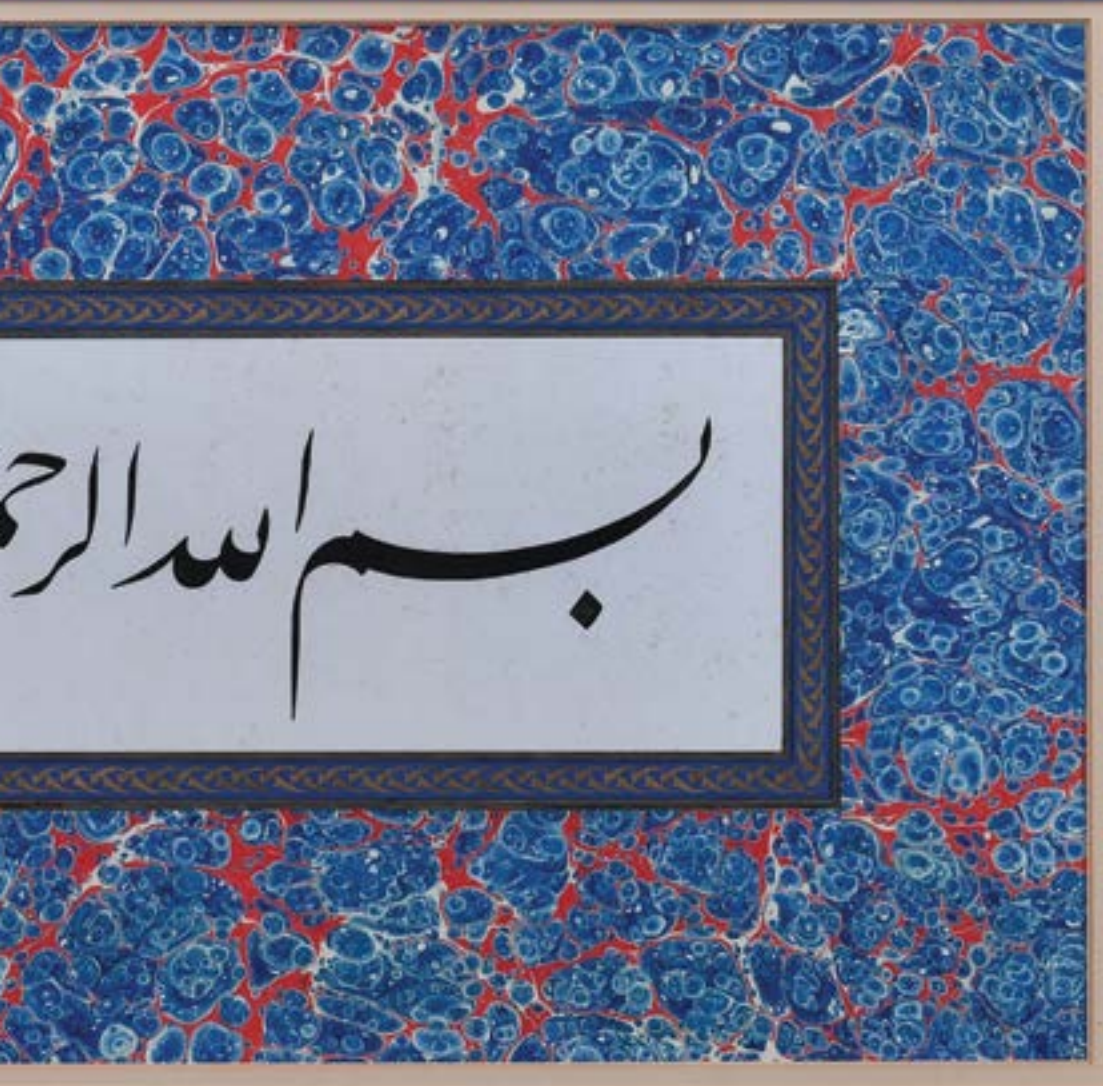 بسم الله الرحم